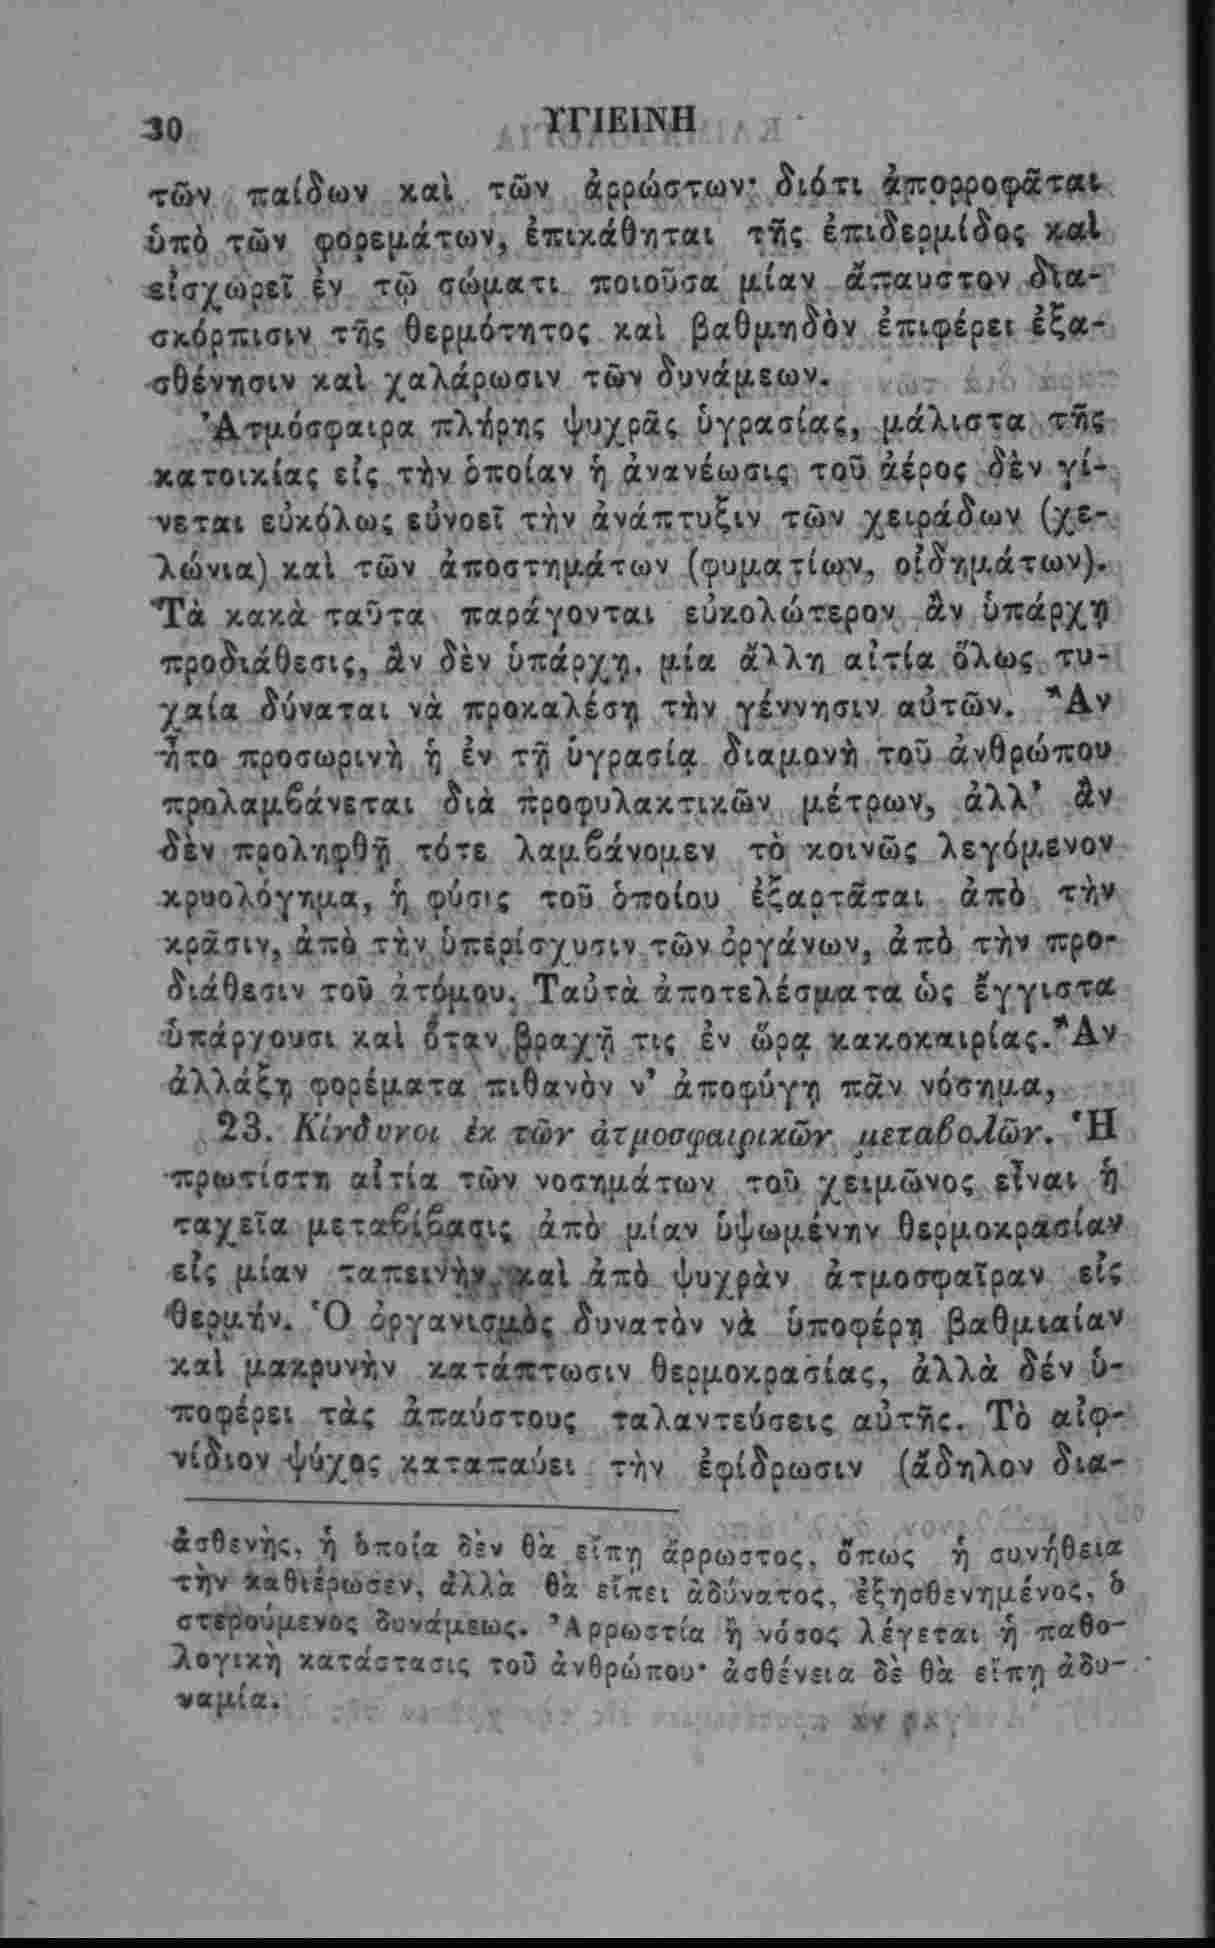 30
ΥΓΙΕΙΝΗ
τῶν παίδων καὶ τῶν ἀρρώστων· διότι ἀπορροφᾶται
ὑπὸ τῶν φορεμάτων, ἐπικάθηται τῆς ἐπιδερμίδος καὶ
εἰσχωρεῖ ἐν τῷ σώματι ποιοῦσα μίαν ἄπαυστον δια-
σκόρπισιν τῆς θερμότητος καὶ βαθμηδὸν ἐπιφέρει ἐξα-
σθένησιν καὶ χαλάρωσιν τῶν δυνάμεων.
Ἀτμόσφαιρα πλήρης ψυχρᾶς ὑγρασίας, μάλιστα τῆς
κατοικίας εἰς τὴν ὁποίαν ἡ ἀνανέωσις τοῦ ἀέρος δὲν γί-
νεται εὐκόλως εὐνοεῖ τὴν ἀνάπτυξιν τῶν χειράδων (χε-
λώνια) καὶ τῶν ἀποστημάτων (φυματίων, οἰδημάτων).
Τὰ κακὰ ταῦτα παράγονται εὐκολώτερον ἂν ὑπάρχῃ
προδιάθεσις, ἂν δὲν ὑπάρχῃ, μία ἄλλη αἰτία ὅλως τυ-
χαία δύναται νὰ προκαλέσῃ τὴν γέννησιν αὐτῶν. Ἂν
ἦτο προσωρινὴ ἡ ἐν τῇ ὑγρασίᾳ διαμονὴ τοῦ ἀνθρώπου
προλαμβάνεται διὰ προφυλακτικῶν μέτρων, ἀλλ’ ἂν
δὲν προληφθῇ τότε λαμβάνομεν τὸ κοινῶς λεγόμενον
κρυολόγημα, ἡ φύσις τοῦ ὁποίου ἐξαρτᾶται ἀπὸ τὴν
κρᾶσιν, ἀπὸ τὴν ὑπερίσχυσιν τῶν ὀργάνων, ἀπὸ τὴν προ-
διάθεσιν τοῦ ἀτόμου. Ταὐτὰ ἀποτελέσματα ὡς ἔγγιστα
ὑπάρχουσι καὶ ὅταν βραχῇ τις ἐν ὥρᾳ κακοκαιρίας. Ἂν
ἀλλάξῃ φορέματα πιθανὸν ν’ ἀποφύγῃ πᾶν νόσημα,
23. Κίνδυνοι ἐκ τῶν ἀτμοσφαιρικῶν μεταβολῶν. Ἡ
πρωτίστη αἰτία τῶν νοσημάτων τοῦ χειμῶνος εἶναι ἡ
ταχεῖα μεταβίβασις ἀπὸ μίαν ὑψωμένην θερμοκρασίαν
εἰς μίαν ταπεινὴν, καὶ ἀπὸ ψυχρὰν ἀτμοσφαῖραν εἰς
θερμήν. Ὁ ὀργανισμὸς δυνατὸν νὰ ὑποφέρῃ βαθμιαίαν
καὶ μακρυνὴν κατάπτωσιν θερμοκρασίας, ἀλλὰ δέν ὑ-
ποφέρει τὰς ἀπαύστους ταλαντεύσεις αὐτῆς. Τὸ αἰφ-
νίδιον ψύχος καταπαύει τὴν ἐφίδρωσιν (ἄδηλον δια-
ἀσθενὴς, ἡ ὁποία δὲν θὰ εἴπῃ ἄρρωστος, ὅπως ἡ συνήθεια
τὴν καθιέρωσεν, ἀλλὰ θὰ εἴπει ἀδύνατος, ἐξησθενημένος, ὁ
στερούμενος δυνάμεως. Ἀρρωστία ἢ νόσος λέγεται ἡ παθο-
λογικὴ κατάστασις τοῦ ἀνθρώπου· ἀσθένεια δὲ θὰ εἴπῃ ἀδυ-
ναμία.